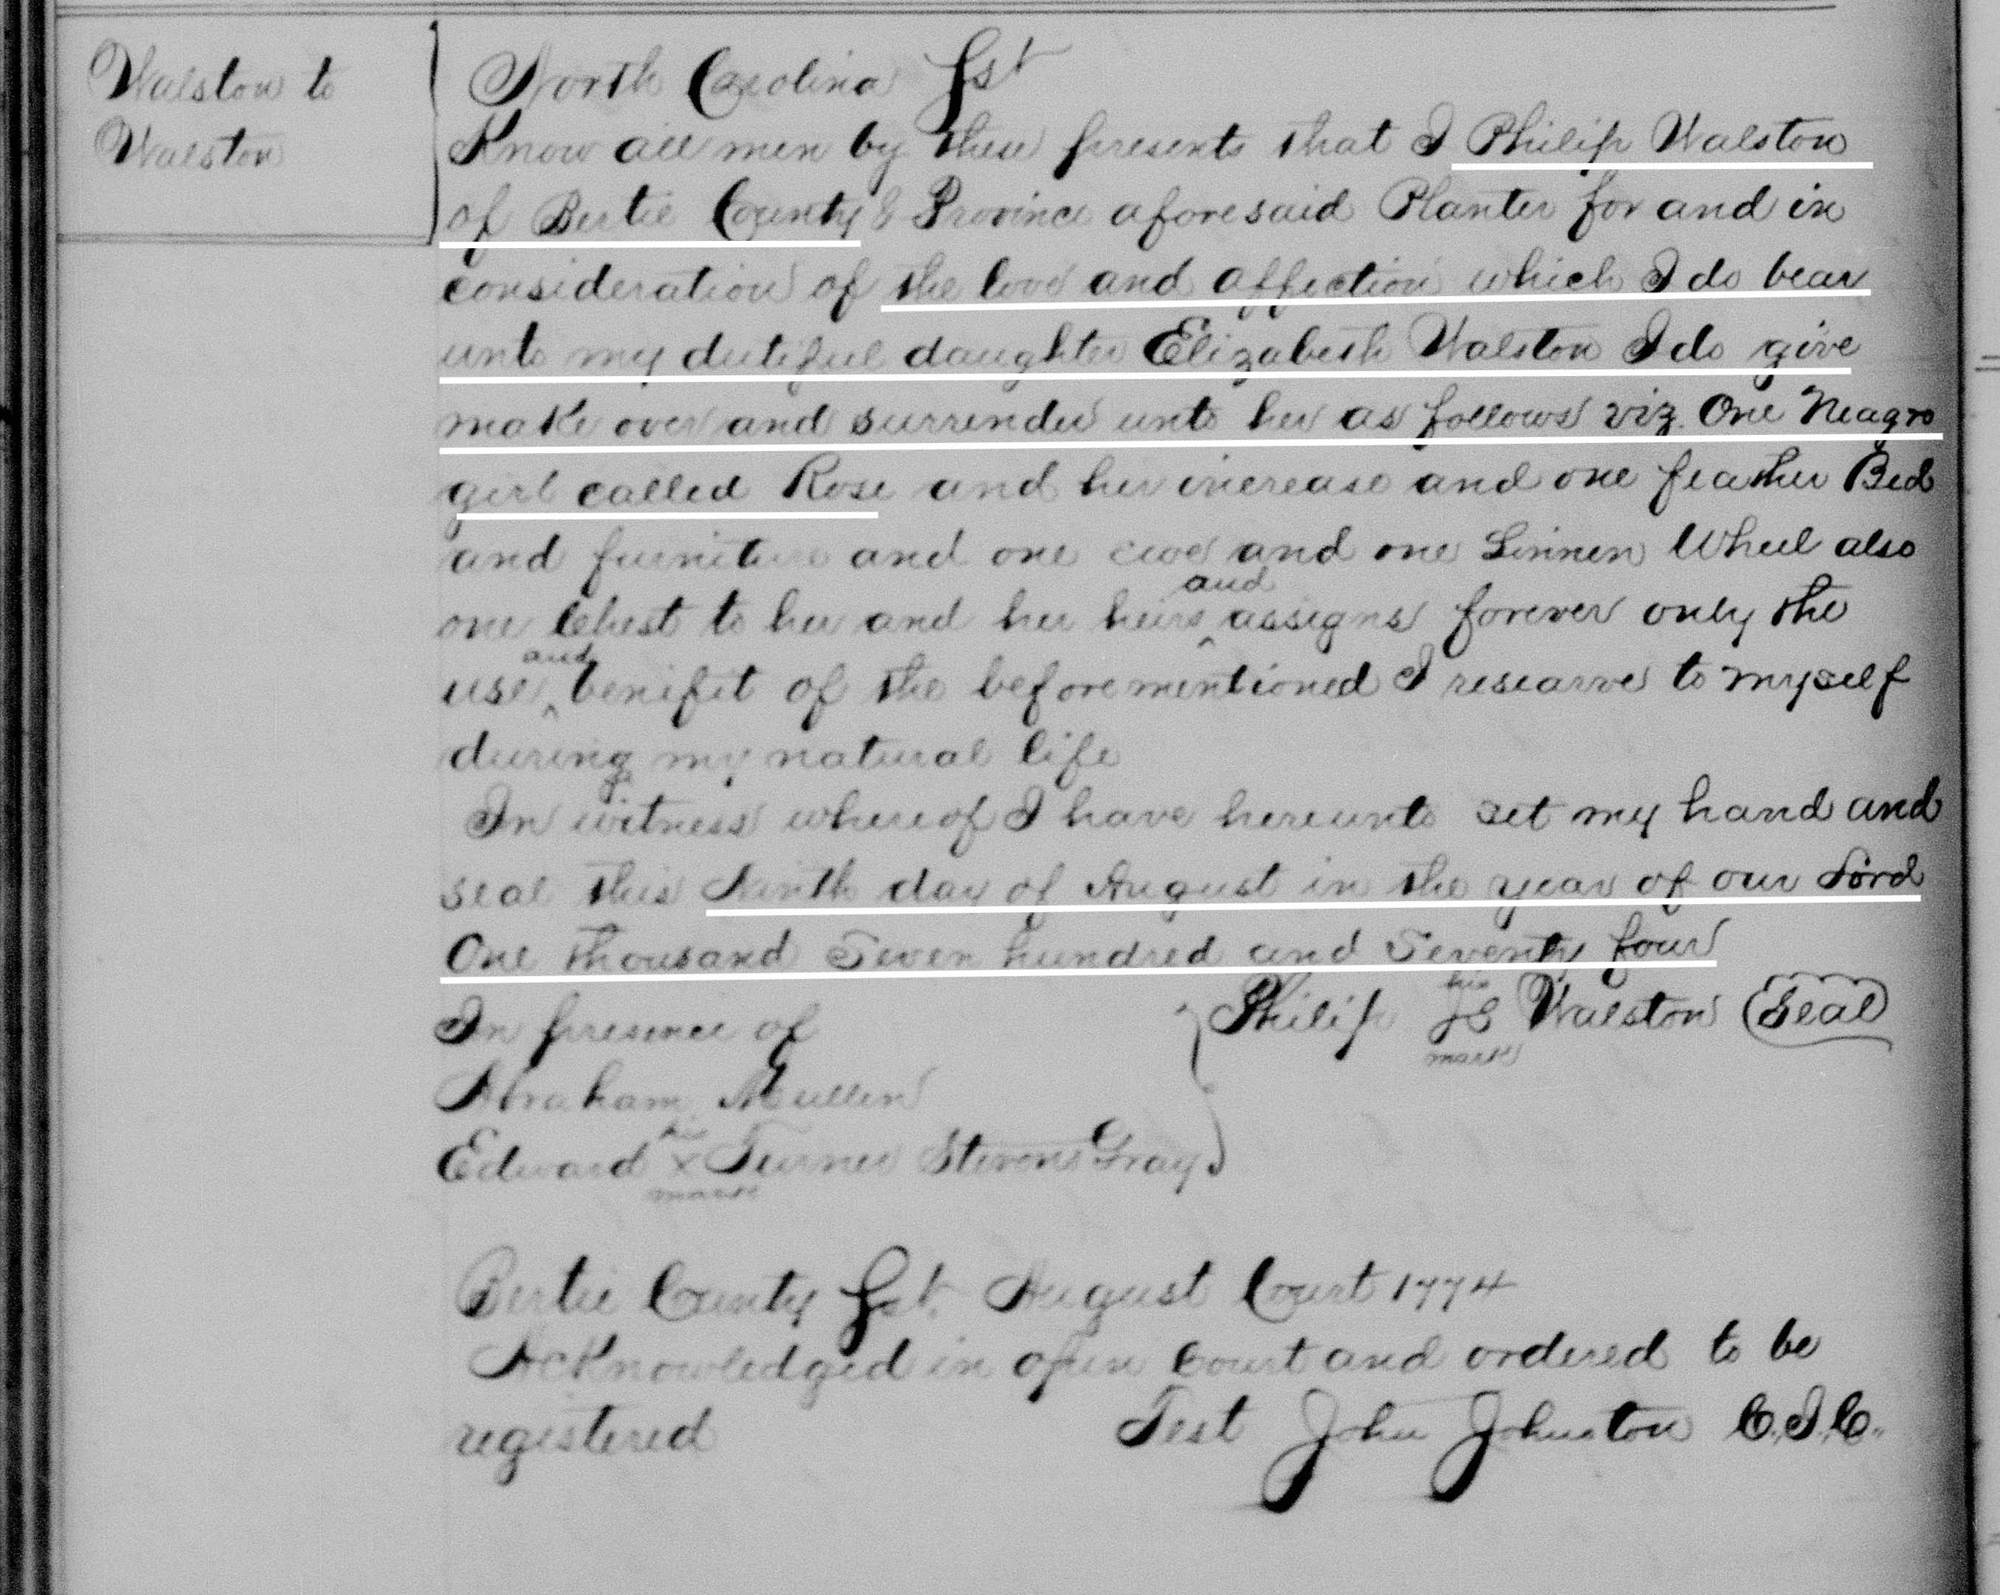 Walston to
Walston
North Carolina Sst
Know all men by these presents that I Philip Walston
of Bertie County & Province aforesaid Planter for and in
consideration of the love and affection which I do bear
unto my dutiful daughter Elizabeth Walston I do give
make over and surrender unto her as follows viz. One Neagro
girl called Rose and her increase and one feather Bed
and furniture and one and one Linnen Wheel also
and
one Chest to her and her heirs ^ assigns forever only the
and
use ^ benifit of the beforementioned I researve to myself
during my natural life
In witness whereof I have hereunto set my hand and
seal this Ninth day of August in the year of our Lord
One thousand Seven hundred and Seventy four
his
In presence of Philip Walston Seal
mark
Abraham Mullen
his
Edward x Turner Stevens Gray
mark
Bertie County Sst. August Court 1774
Acknowledged in open Court and ordered to be
registered Test John Johnston C.I.C.